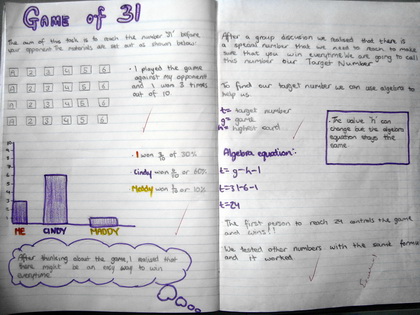 GAME OF 31
The aim of this task is to reach the number '31' before
your opponent. The materials are set out as shown below:
A 2 3 4 5 6
A 2 3 4 5 6
A 2 3 4 5 6
A 2 3 4 5 6
• I played the game
against my opponent
and I won 3 times
out of 10.
• I won 3/10 or 30%
• Cindy won 6/10 or 60%
• Maddy won 1/10 or 10%
ME CINDY MADDY
After thinking about the game, I realised that
there might be an easy way to win
everytime.
After a group discussion we realised that there is
a special number that we need to reach to make
sure that you win everytime. We are going to call
this number our 'Target Number'
To find our target number we can use algebra to
help us.
t= target number
g= game
h= highest card
• The value 'h' can
change but the algebra
equation stays the
same.
Algebra equation:
t= g-h-1
t=31-6-1
t=24
The first person to reach 24 controls the game
and wins!!
We tested other numbers with the same formula
and it worked.